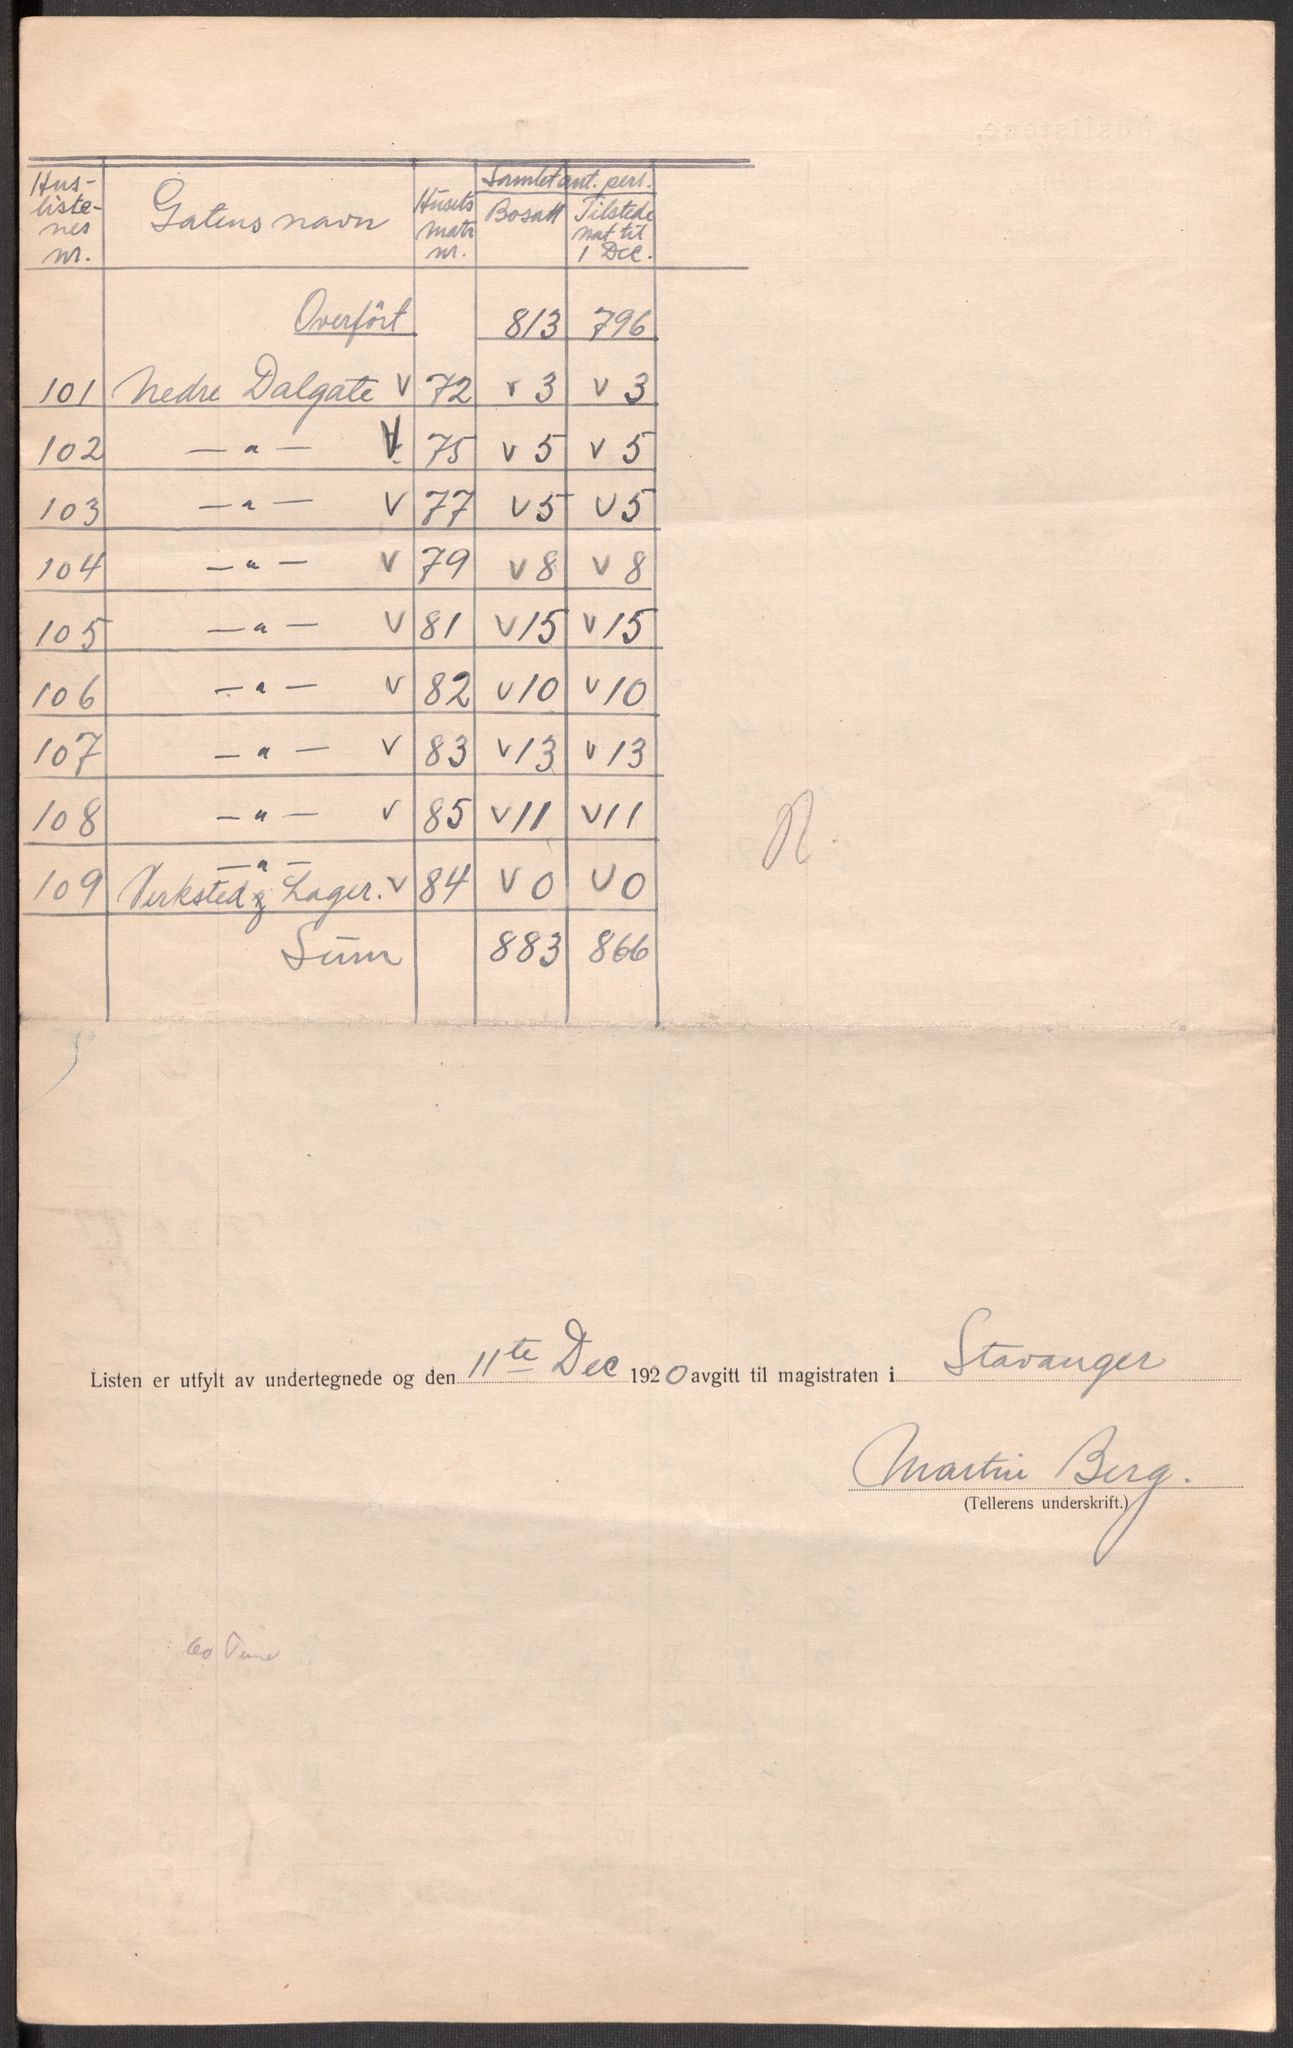 Hus-
liste-
nes
nr.
Gatens navn
Husets
matr
nr.
Samlet ant. pers.
Bosatt
Tilstede
nat til
1 Dec.
Overført 813 796
101 Nedre Dalgate v 72 v 3 v 3
102 — " — v 75 v 5 v 5
103 — " — v 77 v 5 v 5
104 — " — v 79 v 8 v 8
105 — " — v 81 v 15 v 15
106 — " — v 82 v 10 v 10
107 — " — v 83 v 13 v 13
108 — " — v 85 v 11 v 11
— " —
109 Verksted og Lager. v 84 v 0 v 0
Sum 883 866
Listen er utfylt av undertegnede og den 11te Dec 1920 avgitt til magistraten i Stavanger
Martin Berg.
(Tellerens underskrift.)